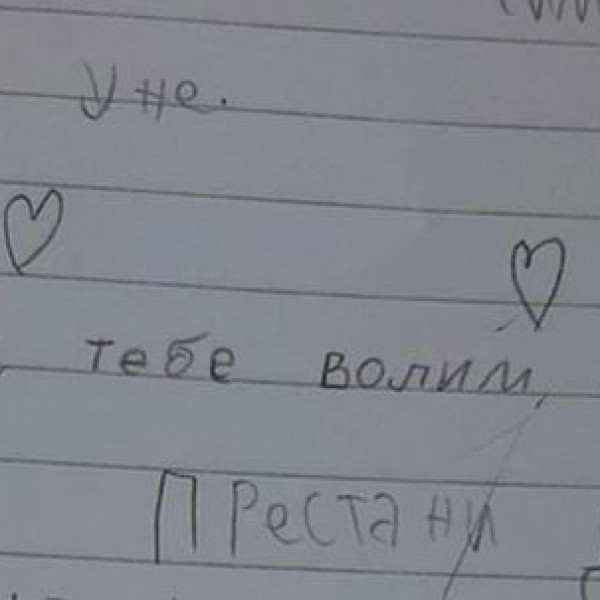 У не.
тебе волим
Престани